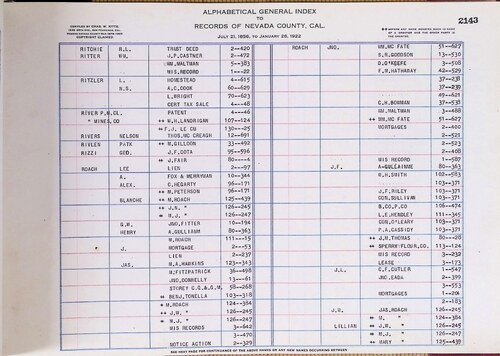 ALPHABETICAL GENERAL INDEX
TO
RECORDS OF NEVADA COUNTY, CAL.
JULY 21, 1856, TO JANUARY 26, 1922
2143
COPYRIGHT CLAIMED
RITCHIE R.L. TRUST DEED 2--426
RITTER WM. J.P.CASTNER 2--472
WM.MALTMAN 5--383
MIS RECORD 1---22
RITZLER L. HOMESTEAD 4--615
N.S. A.C.COOK 60--629
L.WRIGHT 70--623
CERT TAX SALE 4---48
RIVER P.M.CL. PATENT 4---46
" MINES,CO ++ W.H.LANDRIGAN 107--124
++ F.J. LE CU 130---25
RIVERS NELSON THOS.MC CREAGH 12--691
RIVLEN PATK ++ M.GILLOON 33--492
RIZZI GEO. J.F.COTA 95--596
++ J.FAIR 80----4
ROACH LEE LIEN 2--97
A. FOX & MERRYMAN 10--344
ALEX. C.HEGARTY 96--171
++ M.PETERSON 96--171
BLANCHE ++ M.ROACH 125--439
++ J.N. " 126--245
++ M.J. " 126--247
G.H. JNO.FITTER 10--194
HENRY A.GULLIAMM 80--363
M.ROACH 111---15
J. MORTGAGE 2---53
LIEN 2--237
JAS. M.A.HAWKINS 123--343
M.FITZPATRICK 36--498
JNO.DONNELLY 13--61
STOREY C.Q.&G.M. 58--268
++ BENJ.TONELLA 103--318
+ M.ROACH 124--384
++ J.R. " 126--245
++ M.J. " 126--247
MIS RECORDS 3--642
3--470
NOTICE ACTION 2--329
ROACH JNO. WM.MC FATE 51--627
S.R.GOODSON 13--530
D.O'KEEFE 3--508
F.M.HATHAWAY 42--529
37--238
37--239
49--621
C.H.BOWMAN 37--538
WM.MALTMAN 3--488
++ WM.MC FATE 51--627
MORTGAGES 2--480
2--521
2--523
2--488
MIS RECORD 1--587
J.F. 80--363
R.H.SMITH 102--583
103--371
J.F.RILEY 103--371
CON.SULLIVAN 103--371
B.CO.P.CO 106--474
L.E.HENDLEY 111--345
CON.O'LEARY 103--371
P.A.CASSIDY 103--371
++ J.H.THOMAS 80---28
++ SPERRY FLOUR,CO. 113--124
MIS RECORD 3--232
LEASE 3--173
J.L. C.F.CUTLER 1--547
JNO.EADA 2--399
3--553
MORTGAGES 1--206
2--183
J.R. JAS.ROACH 126--245
++ M. " 124--384
LILLIAN ++ J.R. " 126--245
++ M.J. " 126--247
++ MARY " 125--439
SEE NEXT PAGE FOR CONTINUANCE OF THE ABOVE NAMES OR ANY NEW NAMES OCCURRING BETWEEN